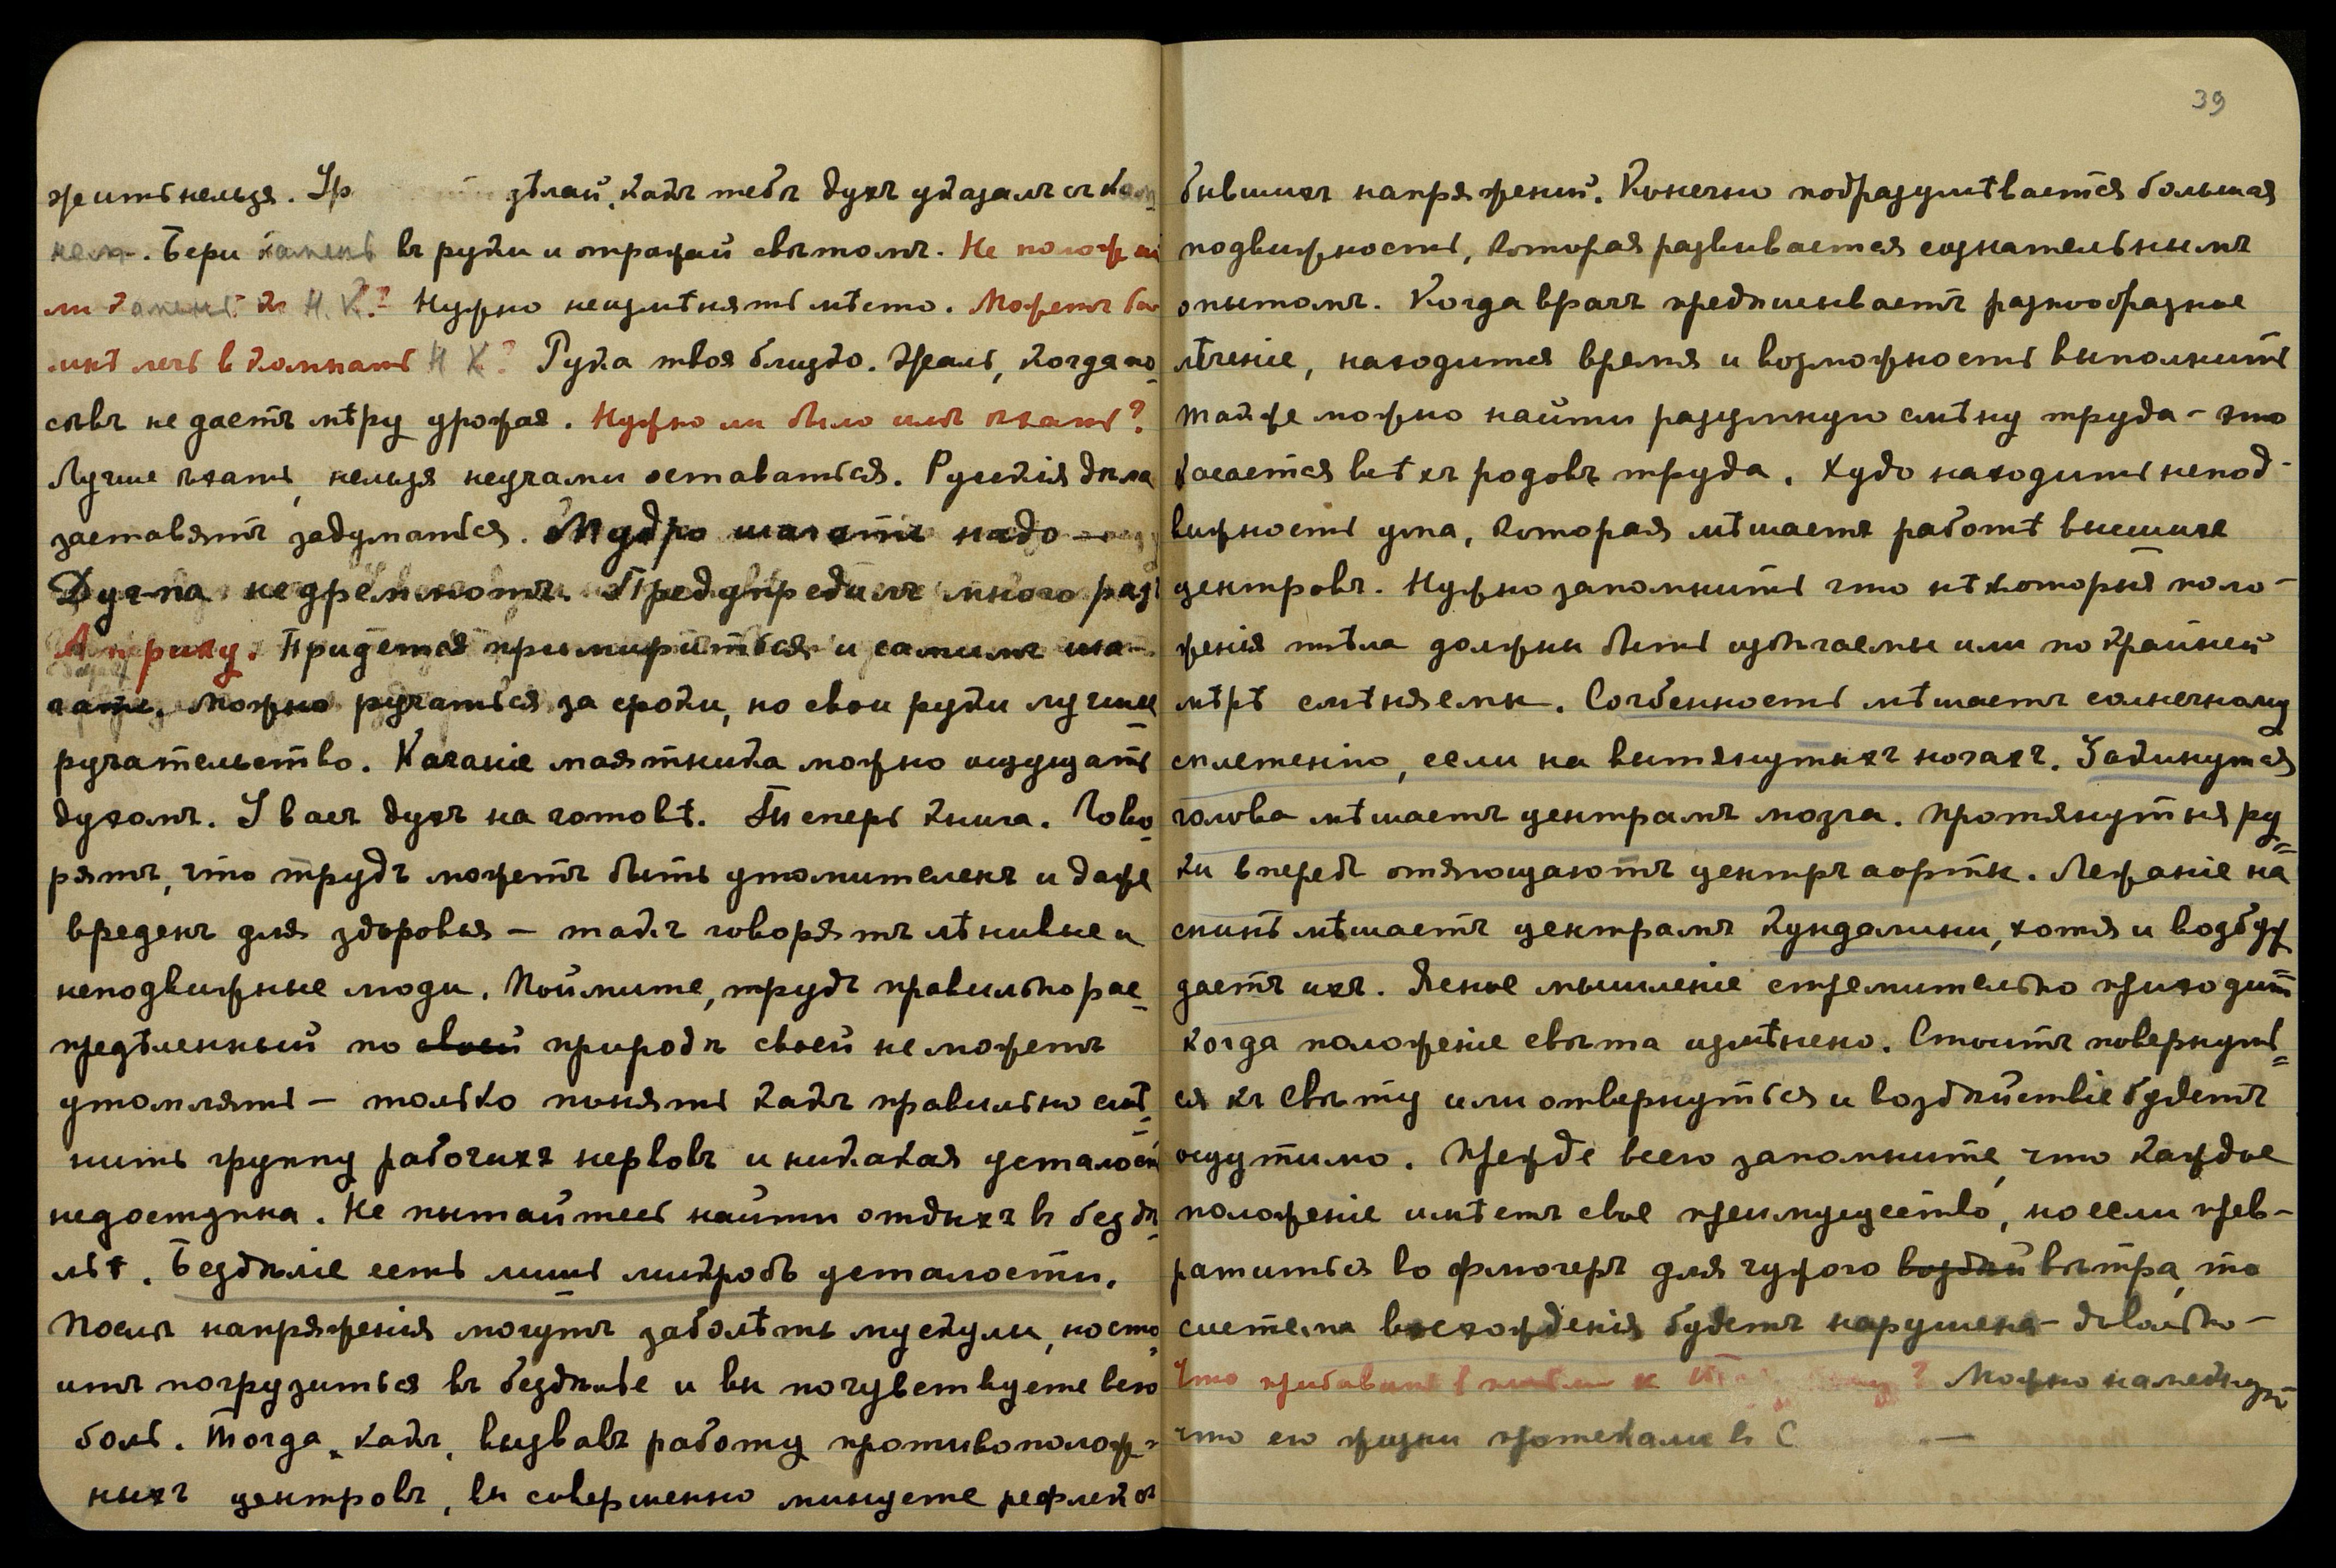 жить нельзя. Ур дѣлай, какъ тебѣ духъ указалъ съ кам
немъ. Бери камень въ руки и отражай свѣтомъ. Не положи
ли камень къ Н. К.? Нужно неизмѣнять мѣсто. Можетъ бы
мнѣ лечь в комнатѣ Н К? Рука твоя близко. Жаль, когда по-
сѣвъ не даетъ мѣру урожая. Нужно ли было имъ ѣхать?
Лучше ѣхать, нельзя неучами оставаться. Русскія дѣла
заставятъ задуматься. Мудро шагать надо —
Дугпа не дремлютъ. Предупредилъ много разъ
Африку. Придется примириться и самимъ ша-
гать. Можно ручаться за сроки, но свои руки лучшее
ручательство. Качаніе маятника можно ощущать
духомъ. У васъ духъ на готовѣ. Теперь книга. Гово-
рятъ, что трудъ можетъ быть утомителенъ и даже
вреденъ для здоровья — такъ говорятъ лѣнивые и
неподвижные люди. Поймите, трудъ правильно рас-
предѣленный по своей природѣ своей не можетъ
утомлять — только понять какъ правильно смѣ-
нить группу рабочихъ нервовъ и никакая усталость
недоступна. Не пытайтесь найти отдыхъ въ бездѣ-
льѣ. Бездѣліе есть лишь микробъ усталости.
Послѣ напряженія могутъ заболѣть мускулы, но сто-
итъ погрузиться въ бездѣлье и вы почувствуете всю
боль. Тогда, какъ, вызвавъ работу противополож-
ныхъ центровъ, вы совершенно минуете рефлексъ
39
бывшихъ напряженій. Конечно подразумѣвается большая
подвижность, которая развивается сознательнымъ
опытомъ. Когда врачъ предписываетъ разнообразное
лѣченіе, находится время и возможность выполнить
также можно найти разумную смѣну труда — это
касается всѣхъ родовъ труда. Худо находить непод-
вижность ума, которая мѣшаетъ работѣ высшихъ
центровъ. Нужно запомнить что нѣкоторыя поло-
женія тѣла должны быть избѣгаемы или по крайней
мѣрѣ смѣняемы. Согбенность мѣшаетъ солнечному
сплетенію, если на вытянутыхъ ногахъ. Закинутая
голова мѣшаетъ центрамъ мозга. Протянутыя ру-
ки впередъ отягощаютъ центръ аорты. Лежаніе на
спинѣ мѣшаетъ центрамъ кундалини, хотя и возбуж
даетъ ихъ. Ясное мышленіе стремительно приходит
когда положеніе свѣта измѣнено. Стоитъ повернуть-
ся къ свѣту или отвернуться и воздѣйствіе будетъ
ощутимо. Прежде всего запомните, что каждое
положеніе имѣетъ свое преимущество, но если прев-
ратиться во флюгеръ для чужого воздѣй вѣтра, то
система восхожденія будетъ нарушена — довольно —
Что прибавить в к ? Можно намекнуть
что его жизни протекали въ С —